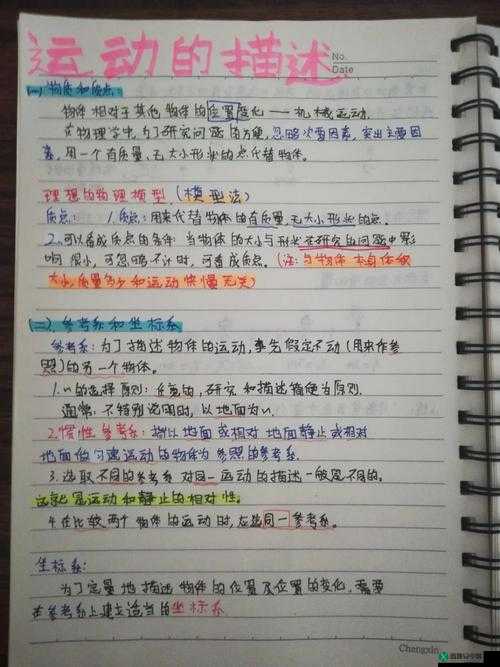 运动的描述
No.
Date
(一) 物质和质点:
物体相对于其他物体的位置变化——机械运动.
在物理学中,为了研究问题的方便,忽略次要因素,突出主要因
素,用一个有质量,无大小形状的点代替物体。
理想的物理模型 (模型法)
质点: 1.质点:用来代替物体的有质量,无大小形状的点.
2.可以看成质点的条件:当物体的大小与形状在研究的问题中影
响很小,可忽略不计时,可看成质点。(注:与物体本身体积
大小质量多少和运动快慢无关)
(二)、参考系和坐标系
参考系:为了描述物体的运动,事先假定不动(用来作参
照)的另一个物体。
1. 的选择原则:任意的,研究和描述简便为原则.
通常,不特别说明时,以地面为
2.惯性参考系:指以地面或相对地面静止或相对
地面做匀速运动的物体为参照的参考系.
3.选取不同的参考系对同一运动的描述一般是不同的。
这就是运动和静止的相对性。
4.在比较两个物体的运动时,应选同一参考系。
坐标系:
为了定量地描述物体的位置及位置的变化,需要
在参考系上建立适当的坐标系.
Chengxin